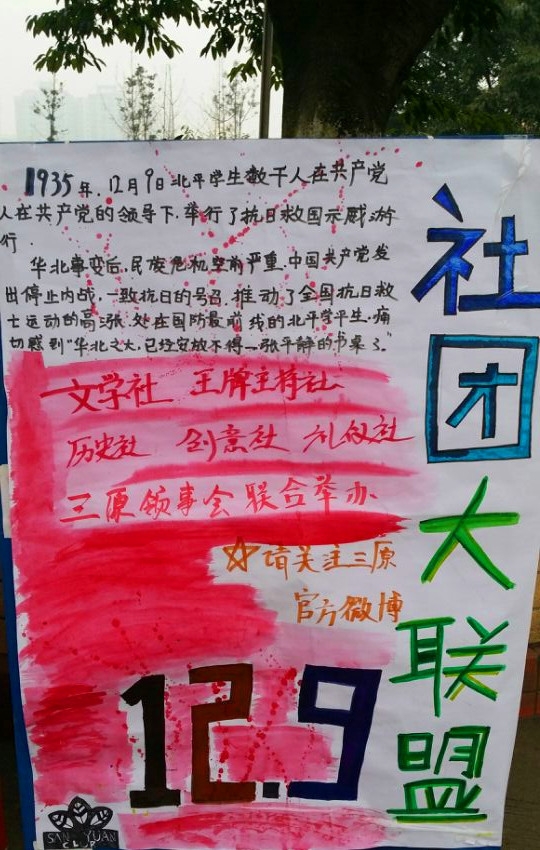 1935年.12月9日北平学生数千人在共产党
人在共产党的领导下.举行了抗日救国示威游
行.
华北事变后.民族危机空前严重.中国共产党发
出停止内战.一致抗日的号召.推动了全国抗日救
土运动的高涨.处在国防最前线的北平学平生.痛
切感到"华北之大.已经安放不得一张平静的书桌了."
社团大联盟
文学社 王牌主持社
历史社 创意社 礼仪社
三原领事会联合举办
☆请关注三原
官方微博
12.9
SAN YUAN
CLUB